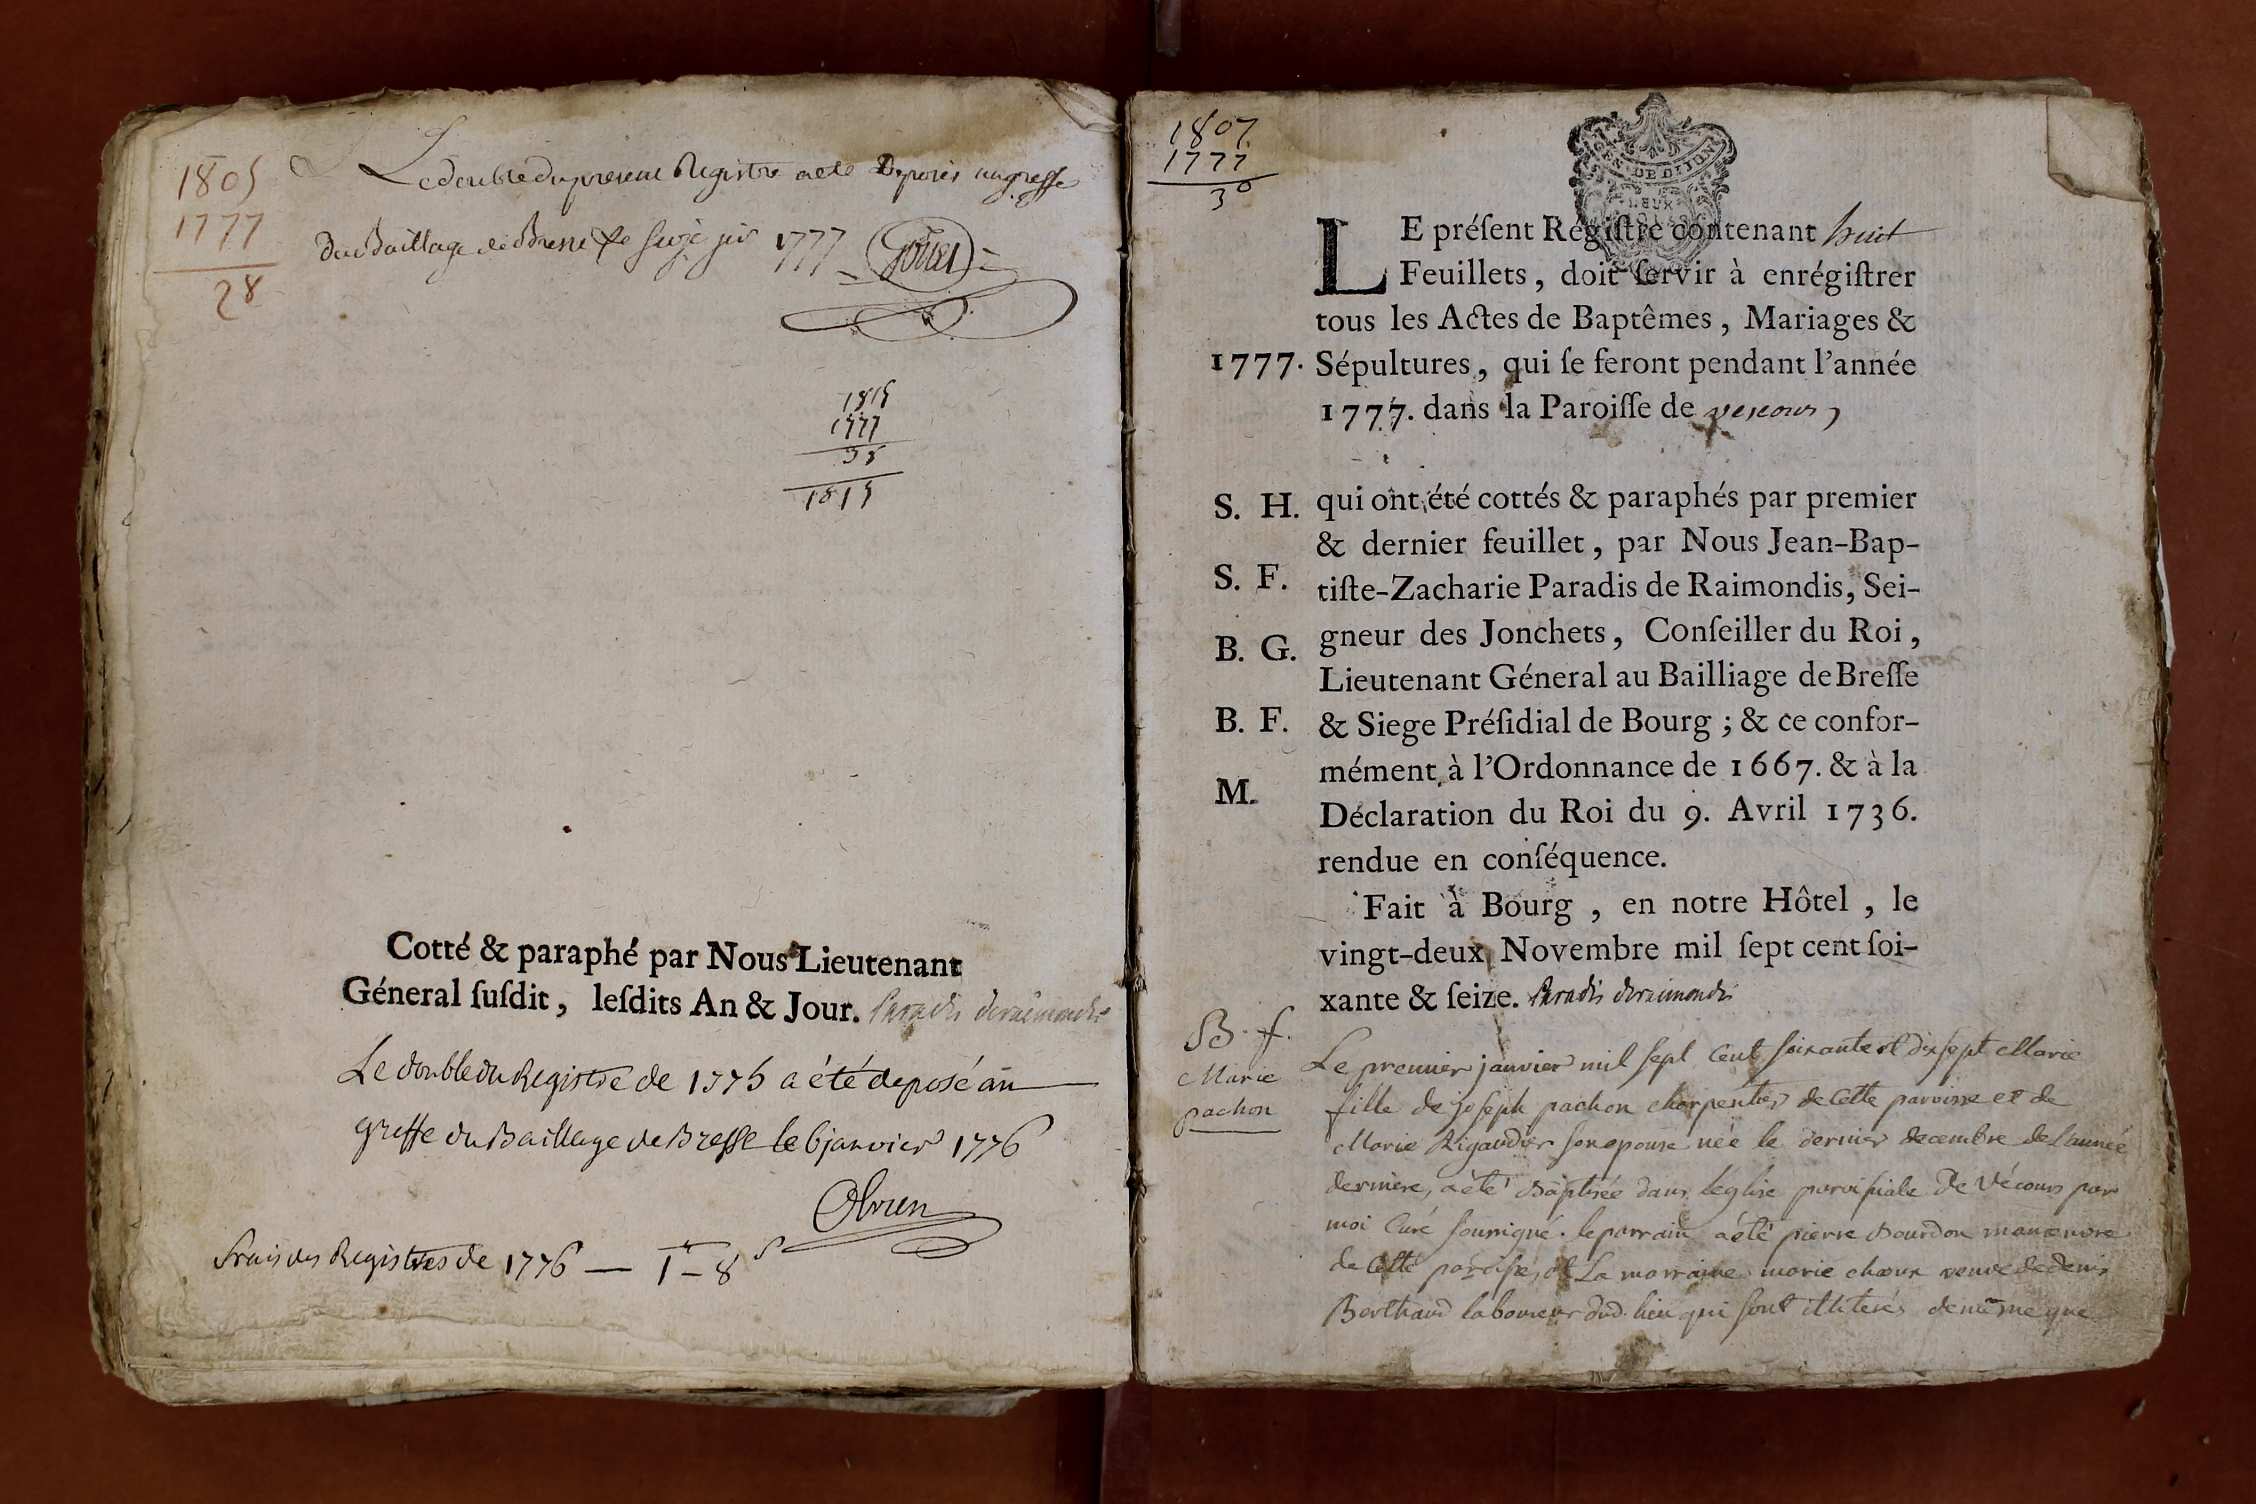 1805
1777
28
Le double du present Registre a eté Deposés au greffe
du Baillage de Bresse le seize jer 1777
1815
1777
38
1815
Cotté & paraphé par Nous Lieutenant
Géneral ſuſdit, leſdits An & Jour. Paradis deraimondis
Le double du Registre de 1775 a été deposé au
greffe du Baillage de Bresse le 6 janvier 1776
frais des Registres de 1776 — 1 - 8 s
1807
1777
30
GEN. DE DIJON
DEUX
LE préſent Régiſtre contenant huit
Feuillets, doit ſervir à enrégiſtrer
tous les Actes de Baptêmes, Mariages &
1777. Sépultures, qui ſe feront pendant l'année
1777. dans la Paroiſſe de vescours
S. H. qui ont été cottés & paraphés par premier
& dernier feuillet, par Nous Jean-Bap-
S. F. tiſte-Zacharie Paradis de Raimondis, Sei-
B. G. gneur des Jonchets, Conſeiller du Roi,
Lieutenant Géneral au Bailliage de Breſſe
B. F. & Siege Préſidial de Bourg; & ce confor-
M. mément à l'Ordonnance de 1667. & à la
Déclaration du Roi du 9. Avril 1736.
rendue en conſéquence.
Fait à Bourg, en notre Hôtel, le
vingt-deux Novembre mil ſept cent ſoi-
xante & ſeize. Paradis deraimondis
B. f.
Marie
pachon
Le premier janvier mil sept Cent soixante et dixsept Marie
fille de joseph pachon charpentier de Cette paroisse et de
Marie Rigaudier son epouse née le dernier decembre de l'année
derniere, a été Baptisée dans l'église paroissiale de Vécours par
moi Curé soussigné. le parrain a été pierre Bourdon manœuvre
de Cette paroisse, et La marraine marie chœur veuve de denis
Berthaud laboureur dud. lieu qui sont illiterés de même que